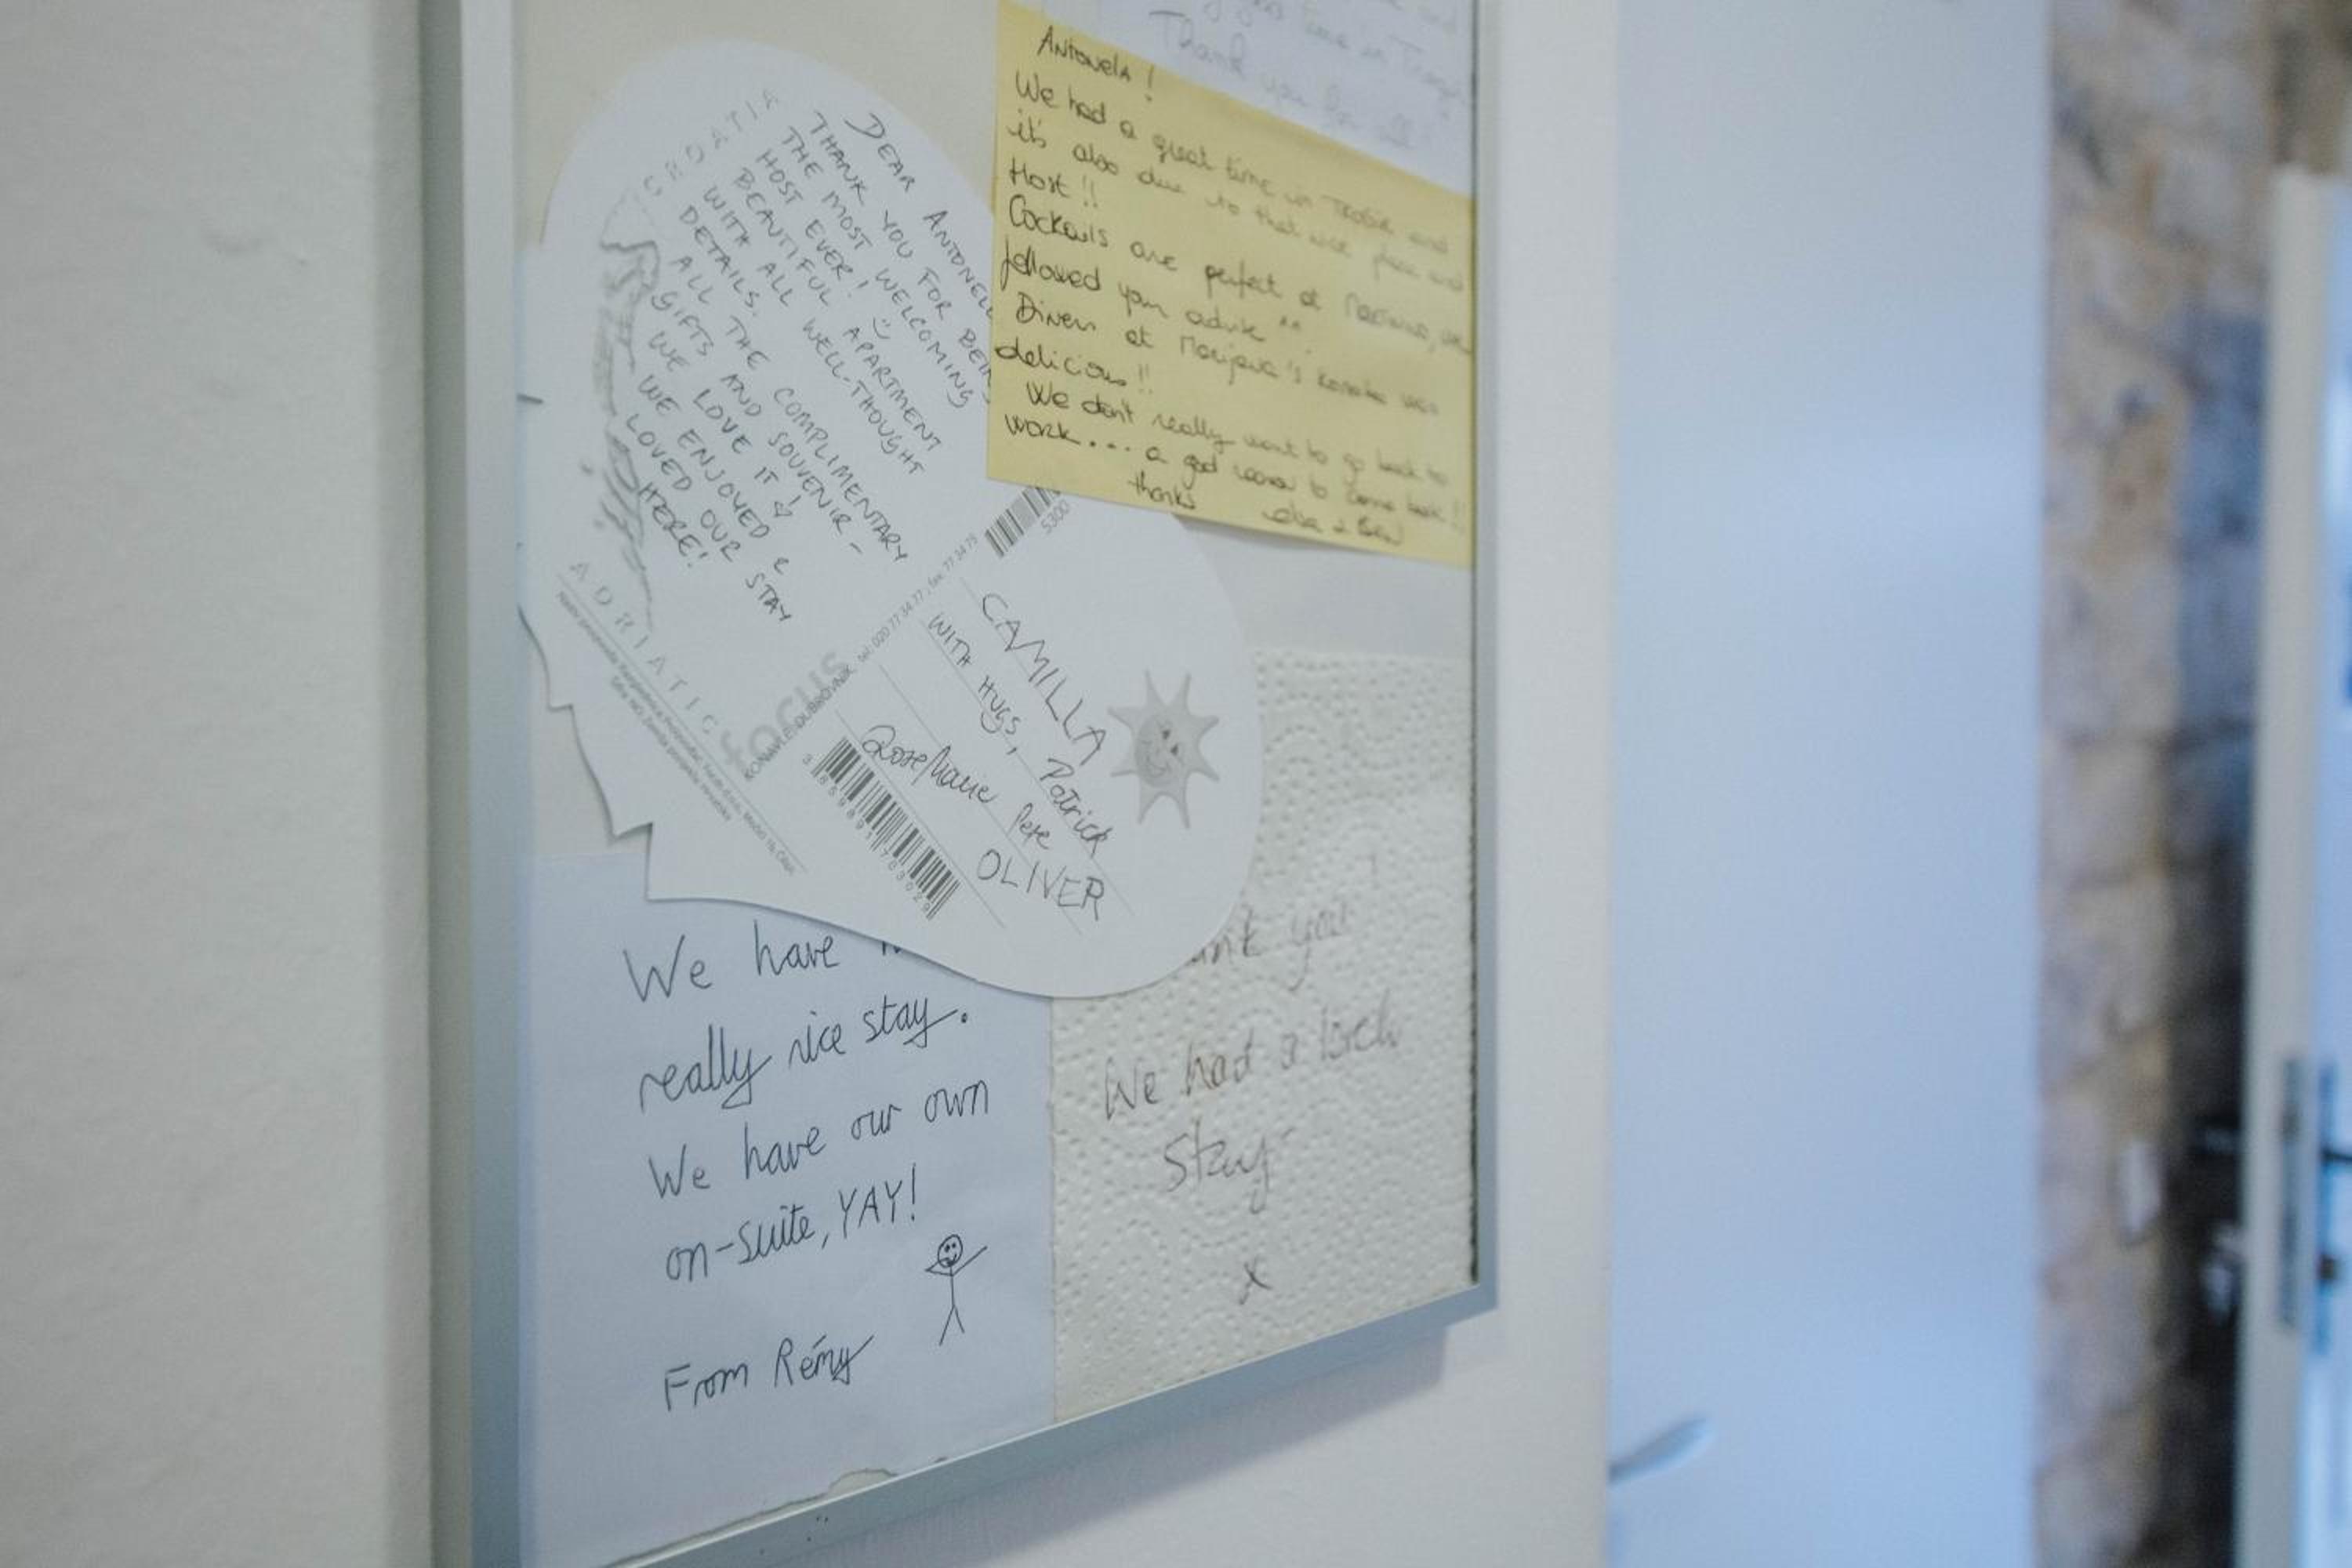 Thank you for all
Antonela !
We had a great time in Trogir and
it's also due to that nice place and
Host !!
Cockails are perfect at
followed your advise ^^
Diner at Marijana's konoba was
delicious !!
We don't really want to go back to
work... a god reason to come back !!
thanks
CROATIA
DEAR ANTONELL
THANK YOU FOR BEING
THE MOST WELCOMING
HOST EVER! :)
BEAUTIFUL APARTMENT
WITH ALL WELL-THOUGHT
DETAILS.
ALL THE COMPLIMENTARY
GIFTS AND SOUVENIR -
WE LOVE IT
WE ENJOYED &
LOVED OUR STAY
HERE!
ADRIATIC
KONAVLE, DUBROVNIK, tel: 020 77 34 77, fax: 77 34 75
5300
CAMILLA
WITH HUGS, Patrick
Rose/Marie Pete
OLIVER
We have
really nice stay.
We have our own
on-suite, YAY!
From Rémy
you
We had a
stay
x